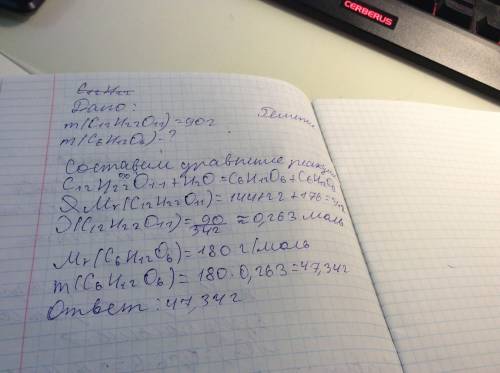 CERBERUS
C₁₂H₂₂
Дано:
m(C₁₂H₂₂O₁₁)=90г
Решение
m(C₆H₁₂O₆)=?
Составим уравнение реакции
C₁₂H₂₂O₁₁+H₂O=C₆H₁₂O₆+C₆H₁₂O₆
Mr(C₁₂H₂₂O₁₁)=144+22+176=342
(C₁₂H₂₂O₁₁)=90/342≈0,263 моль
Mr(C₆H₁₂O₆)=180 г/моль
m(C₆H₁₂O₆)=180·0,263=47,34г
Ответ: 47,34г